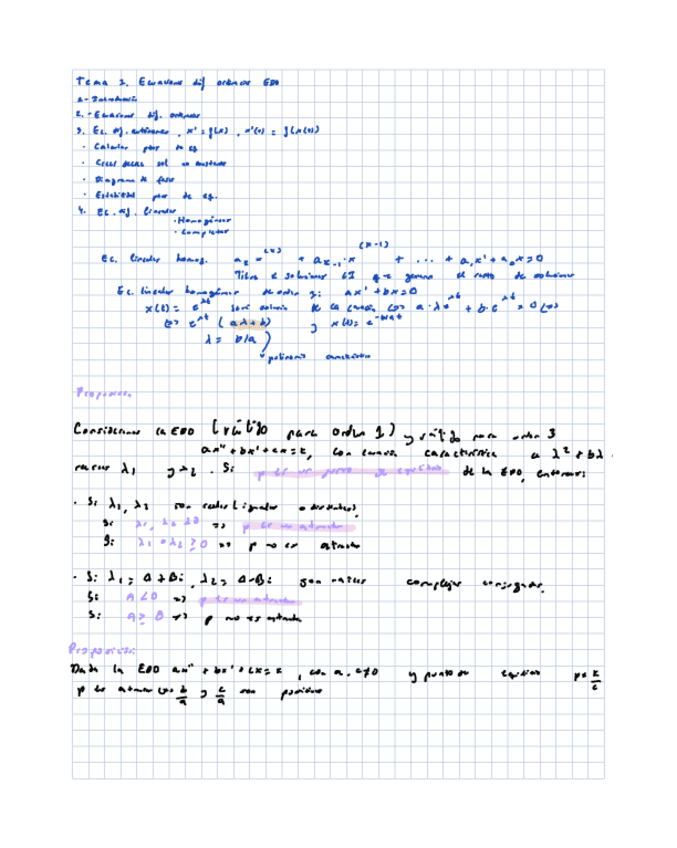 Tema 1. Ecuaciones dif ordinarias EDO
1- Introducción
2.- Ecuaciones dif. ordinarias
3. Ec. dif. autónomas, x' = f(x), x'(t) = f(x(t))
· Calcular ptos de eq
· Crecc decrecc sol no constante
· Diagrama de fase
· Estabilidad ptos de eq.
4. Ec. dif. lineales
· Homogéneas
· Completas
Ec. lineales homog. a x (n) + a x (n-1) + ... + a₁x' + a₀x = 0
el resto de soluciones
Ec. lineales homogéneas de orden 1: ax' + bx = 0
x(t) = e^λt será solución de la ecuación <=> a·λe^λt + b·e^λt = 0 <=>
<=> e^λt (aλ+b) y
λ = b/a
polinomio característico
Proposición
Consideramos la EDO (válido para orden 1) y válido para orden 3
ax'' + bx' + cx = k, con ecuación característica a λ² + bλ
raíces λ₁ y λ₂. Si p es un punto de equilibrio de la EDO, entonces:
· Si λ₁, λ₂ son reales (iguales o distintas)
Si λ₁, λ₂ < 0 => p es un atractor
Si λ₁ o λ₂ ≥ 0 => p no es atractor
· Si λ₁ = A + Bi, λ₂ = A-Bi son raíces complejas conjugadas.
Si A < 0 => p es un atractor
Si A ≥ 0 => p no es atractor
Proposición
Dada la EDO ax'' + bx' + cx = k, con a, c ≠ 0 y punto de equilibrio p = k/c
p es atractor <=> b/a y c/a son positivos